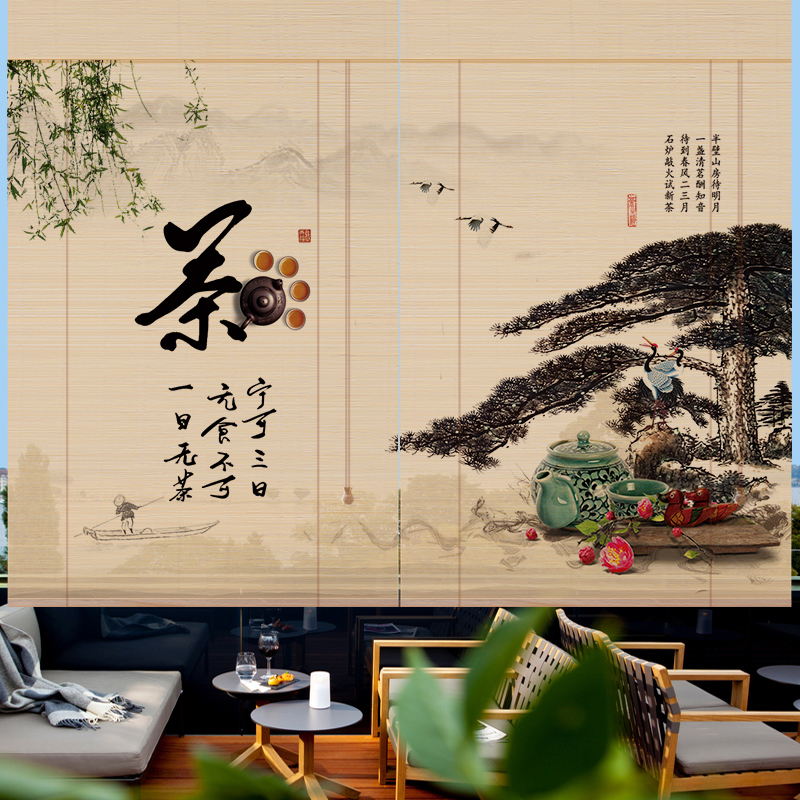 茶
宁可三日
无食不可
一日无茶
半壁山房待明月
一盏清茗酬知音
待到春风二三月
石炉敲火试新茶